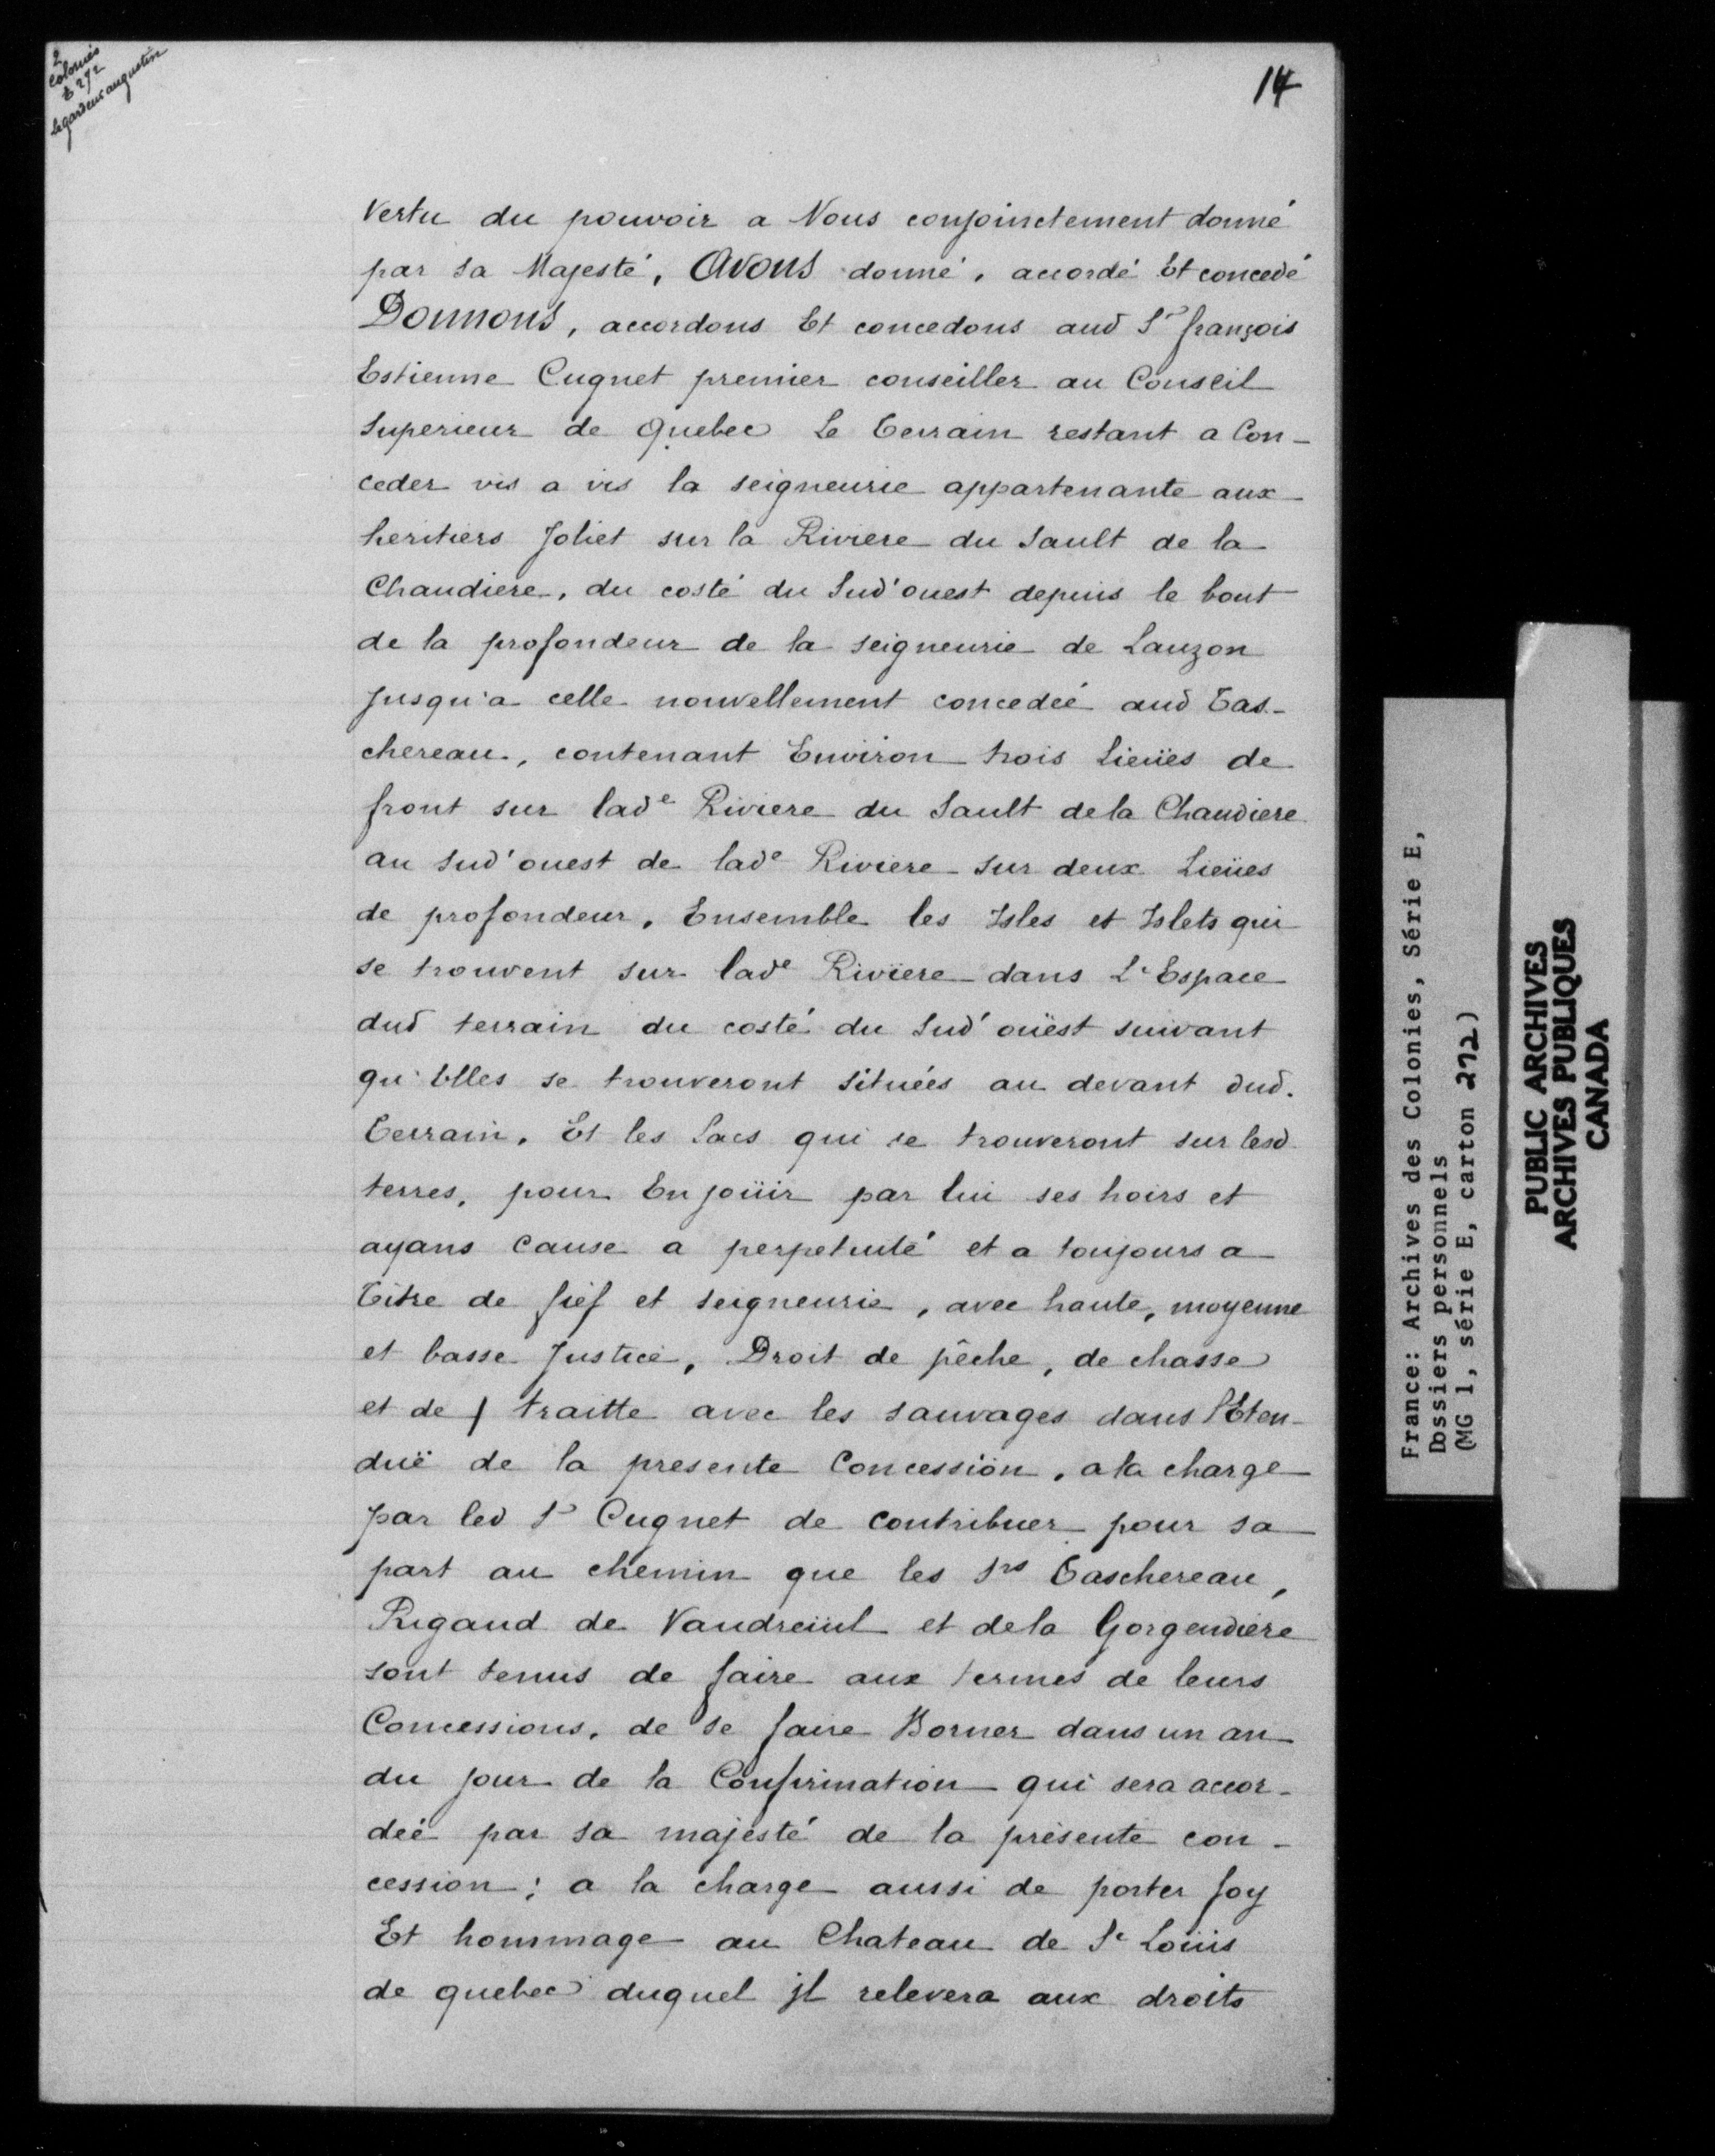 2
Colonies
E 272
Legardeur augustin
14
Vertu du pouvoir a Nous conjoinctement donné
par sa Majesté, Avons donné, accordé Et concedé
Donnons, accordons Et concedons aud Sr françois
Estienne Cugnet premier conseiller au Conseil
Superieur de Quebec Le Terrain restant a Con-
ceder vis a vis la seigneurie appartenante aux
heritiers Joliet sur la Riviere du Sault de la
Chaudiere, du costé du Sud'ouest depuis le bout
de la profondeur de la seigneurie de Lauzon
Jusqu'a celle nouvellement concedée aud Tas-
chereau, contenant Environ trois Lieües de
front sur lade Riviere du Sault de la Chaudiere
au Sud'ouest de lade Riviere sur deux Lieües
de profondeur, Ensemble les Isles et Islets qui
se trouvent sur lade Riviere dans L'Espace
dud terrain du costé du Sud'oüest suivant
qu'Elles se trouveront situées au devant dud.
Terrain, Et les Lacs qui se trouveront sur lesd
terres, pour En joüir par lui ses hoirs et
ayans cause a perpetuité et a toujours a
Titre de fief et seigneurie, avec haute, moyenne
et basse Justice, Droit de pêche, de chasse
et de traitte avec les sauvages dans l'Eten-
düe de la presente Concession, a la charge
par led Sr Cugnet de contribuer pour sa
part au chemin que les Srs Taschereau,
Rigaud de Vaudreüil et de la Gorgendiere
sont tenus de faire aux termes de leurs
Concessions, de se faire Borner dans un an
du jour de la Confirmation qui sera accor-
deé par sa majesté de la présente con-
cession; a la charge aussi de porter foy
Et hommage au Chateau de St Loüis
de quebec duquel jl relevera aux droits
France: Archives des Colonies, Série E,
Dossiers personnels
(MG 1, série E, carton 272)
PUBLIC ARCHIVES
ARCHIVES PUBLIQUES
CANADA